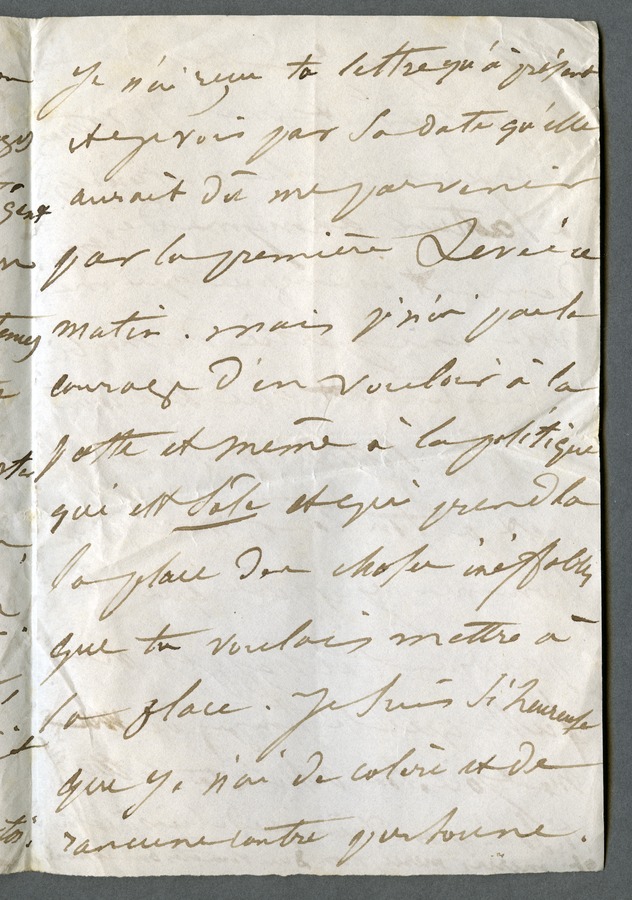 Je n'ai reçu ta lettre qu'à présent
et je vois par sa date qu'elle
aurait dû me parvenir
par la première levée ce
matin. mais je n'ai pas le
courage d'en vouloir à la
poste et même à la politique
qui est sale et qui prend la
la place des choses ineffables
que tu voulais mettre à
la place. Je suis si heureuse
que je n'ai de colère et de
rancune contre personne.